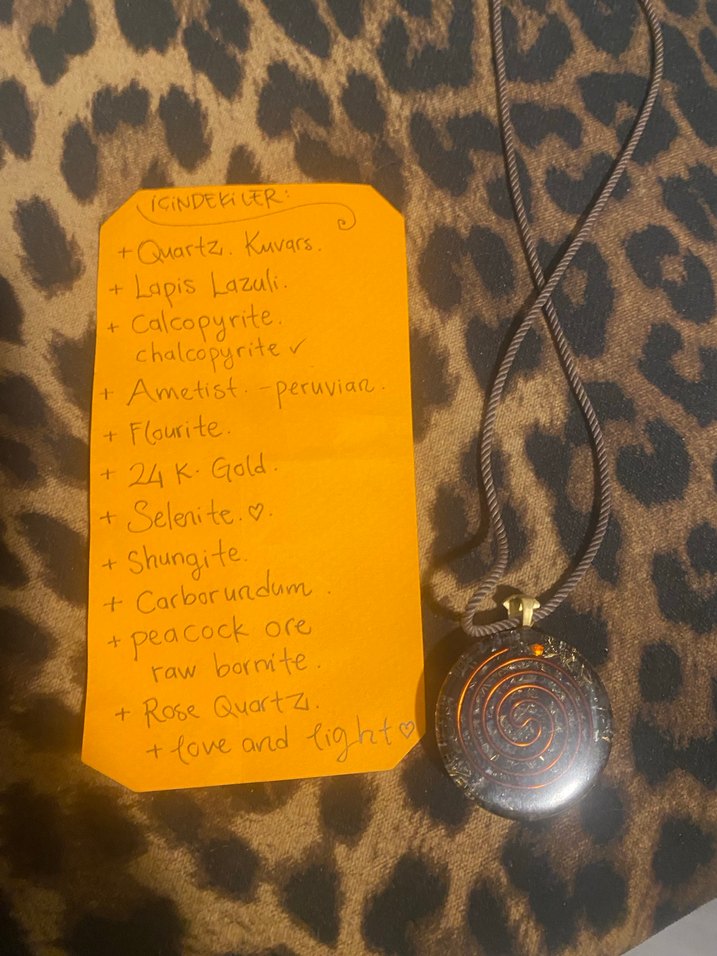 İÇİNDEKİLER:
+ Quartz. Kuvars.
+ Lapis Lazuli.
+ Calcopyrite.
chalcopyrite ✓
+ Ametist. - peruvian.
+ Flourite.
+ 24 K. Gold.
+ Selenite. ♡.
+ Shungite.
+ Carborundum.
+ peacock ore
raw bornite.
+ Rose Quartz.
+ love and light ♡